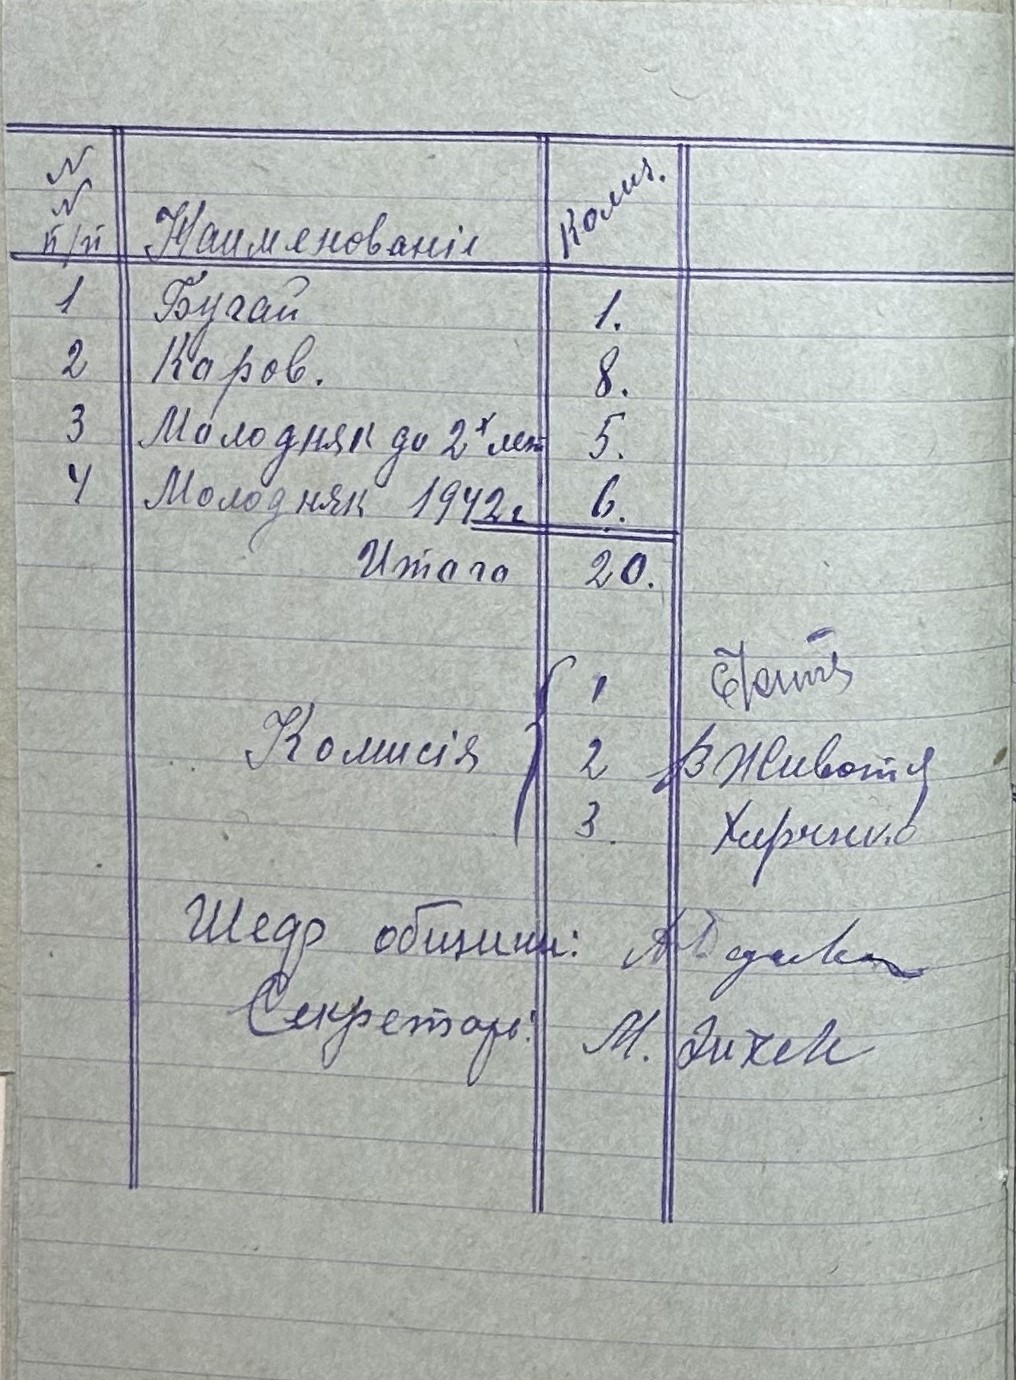 N
N
п/п Наименованіе Колич.
1 Бугай 1.
2 Каров. 8.
3 Молодняк до 2х лет 5.
4 Молодняк 1942г 6.
Итаго 20.
1
Комисія 2 В Животя
3. Харченко
Шедр общини:
Секретарь: М.